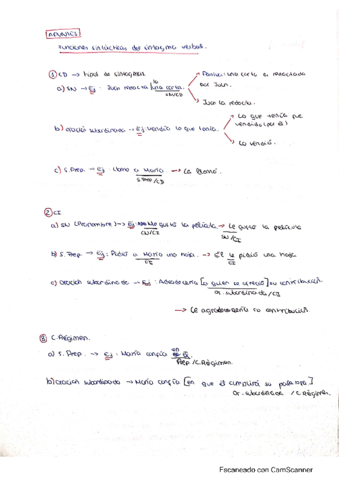 APUNTES
Funciones sintácticas del sintagma verbal.
① CD → tipos de sintagmas. Pasiva: una carta es redactada por Juan.
a) SN → Ej: Juan redacta una carta. lo SN/CD
Juan la redacta.
b) oración subordinada → Ej: vendió lo que tenía. Lo que tenía fue vendido (por él)
Lo vendió.
c) S. Prep. → Ej: Llamo a María → La llamo.
S. Prep / CD
② CI
a) SN (Pronombre) → Ej: Me gustó la película → Le gustó la película
SN/CI SN/CI
b) S. Prep → Ej: Pidió a María una hoja. → Él le pidió una hoja
CI CI
c) Oración subordinada → Ej: Agradecería [a quien se ofreció] su contribución.
Or. subordinada / CI
→ Le agradecería su contribución.
③ C. Régimen.
a) S. Prep. → Ej: María confía en él.
Prep / C. Régimen
b) Oración subordinada → María confía [en que él cumplirá su palabra]
Or. subordinada / C. Régimen.
Escaneado con CamScanner